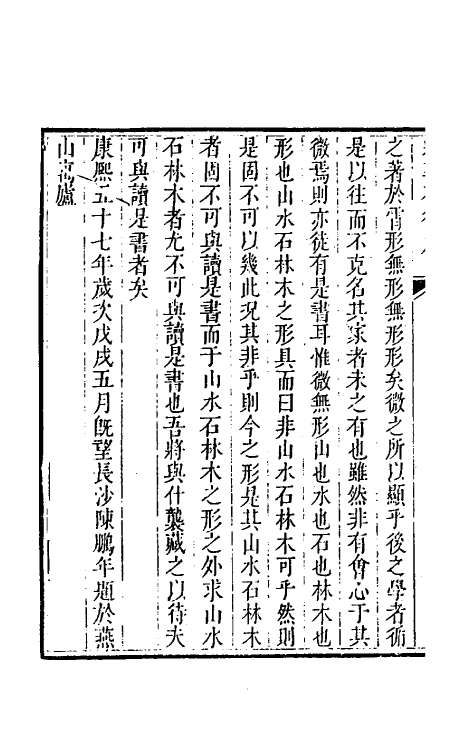 之著於霄形無形無形形矣微之所以顯乎後之學者循
是以往而不克名其家者未之有也雖然非有會心于其
微焉則亦徒有是書耳惟微無形山也水也石也林木也
形也山水石林木之形具而曰非山水石林木可乎然則
是固不可以幾此況其非乎則今之形是其山水石林木
者固不可與讀是書而于山水石林木之形之外求山水
石林木者尤不可與讀是書也吾將與什襲藏之以待夫
可與讀是書者矣
康熙五十七年歲次戊戌五月旣望長沙陳鵬年題於燕
山寓廬